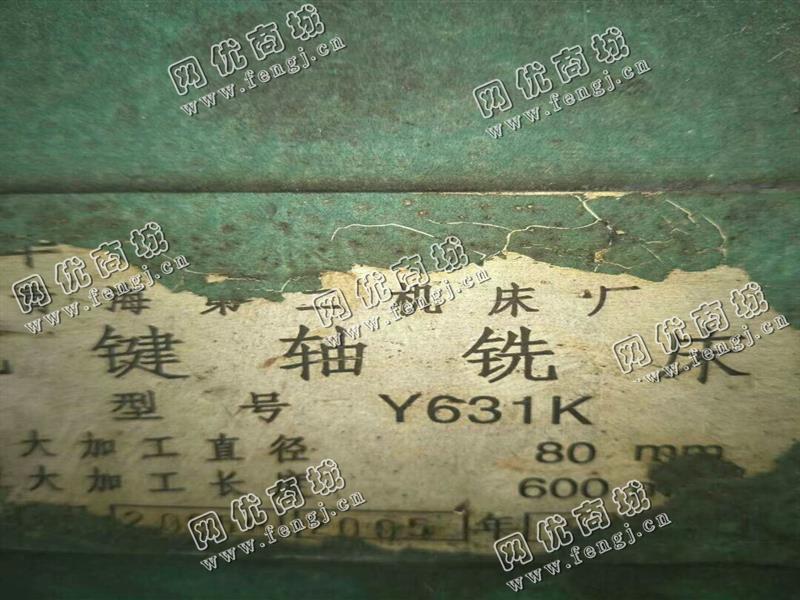 网优商城
www.fengj.cn
网优商城
www.fengj.cn
网优商城
www.fengj.cn
海第二机床厂
网优商城
www.fengj.cn
键轴铣床
网优商城
www.fengj.cn
型号 Y631K
大加工直径 80 mm
大加工长 600
005 年
网优商城
www.fengj.cn
网优商城
www.fengj.cn